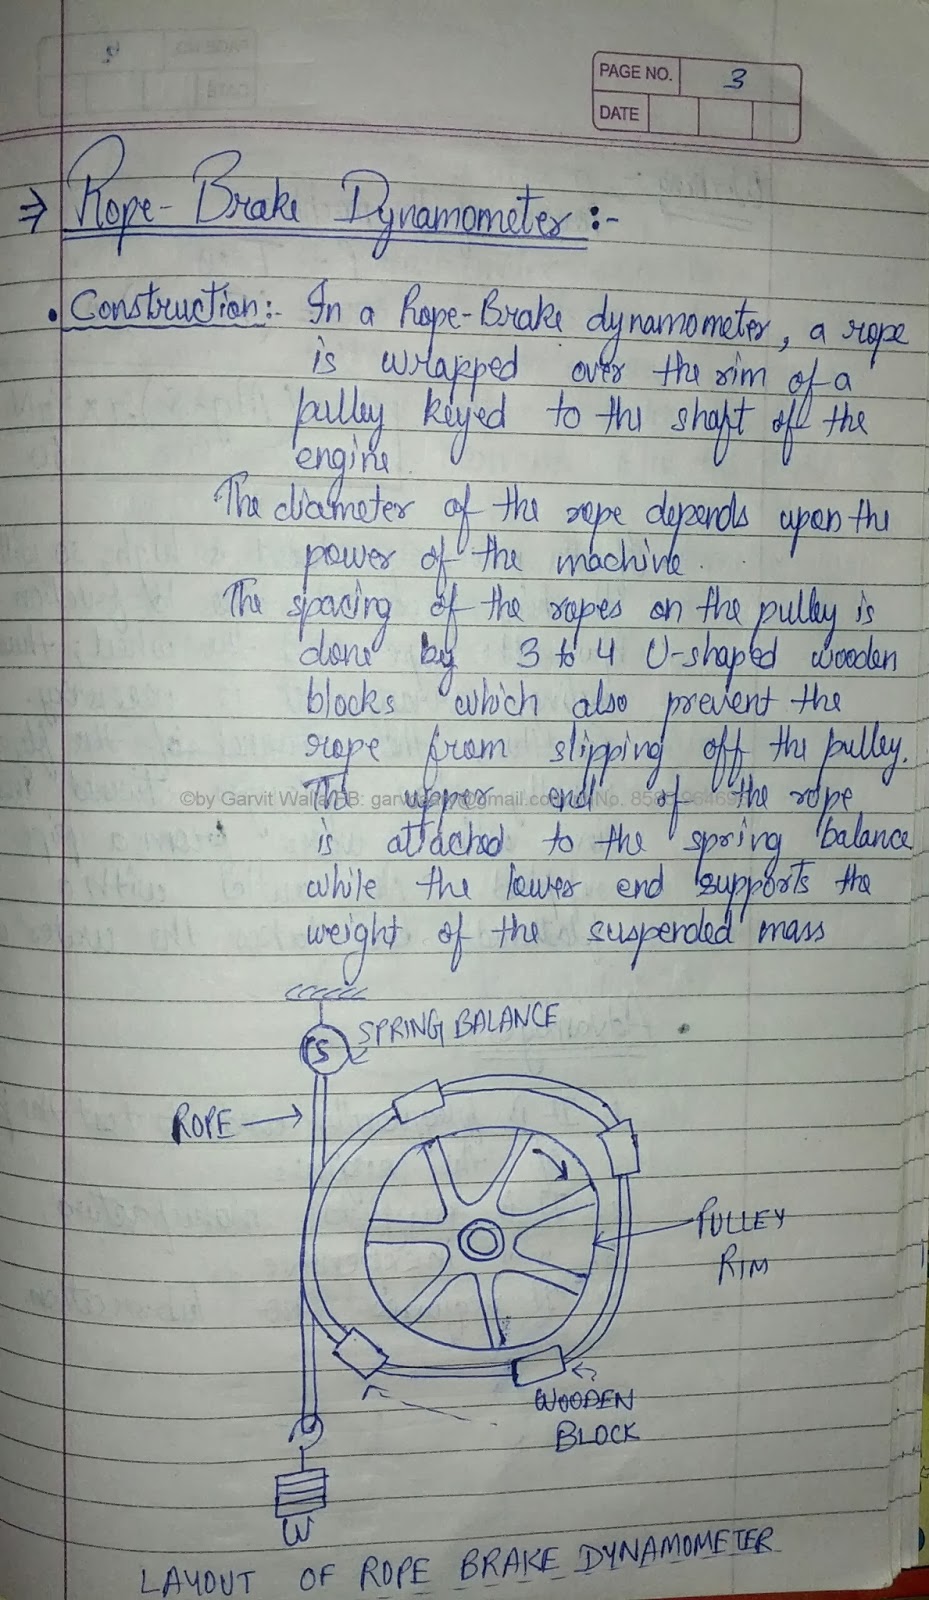 PAGE NO. 3
DATE
⇒ Rope-Brake Dynamometer :-
• Construction:- In a Rope-Brake dynamometer, a rope
is wrapped over the rim of a
pulley keyed to the shaft of the
engine.
The diameter of the rope depends upon the
power of the machine.
The spacing of the ropes on the pulley is
done by 3 to 4 U-shaped wooden
blocks which also prevent the
rope from slipping off the pulley.
©by Garvit Walia
The upper end of the rope
is attached to the spring balance
while the lower end supports the
weight of the suspended mass
SPRING BALANCE
S
ROPE
PULLEY
RIM
WOODEN
BLOCK
W
LAYOUT OF ROPE BRAKE DYNAMOMETER